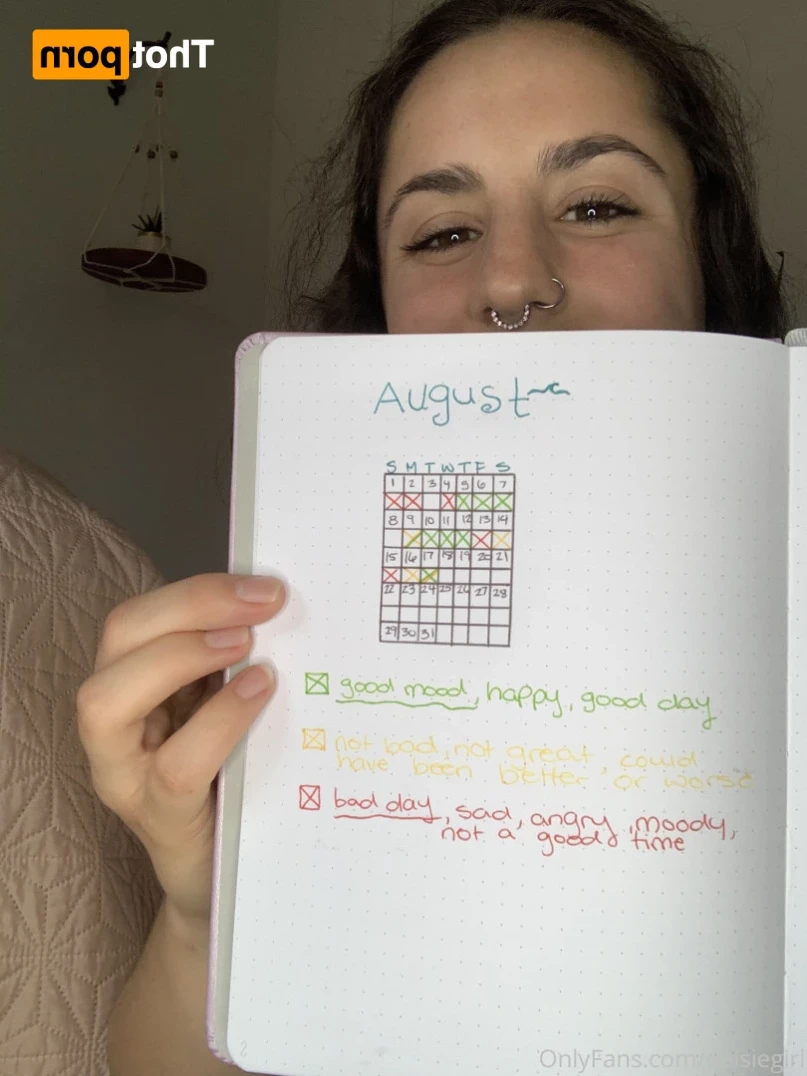 Thotporn
August
S M T W T F S
1 2 3 4 5 6 7
8 9 10 11 12 13 14
15 16 17 18 19 20 21
22 23 24 25 26 27 28
29 30 31
good mood, happy, good day
not bad, not great, could
have been better or worse
bad day, sad, angry, moody,
not a good time
2